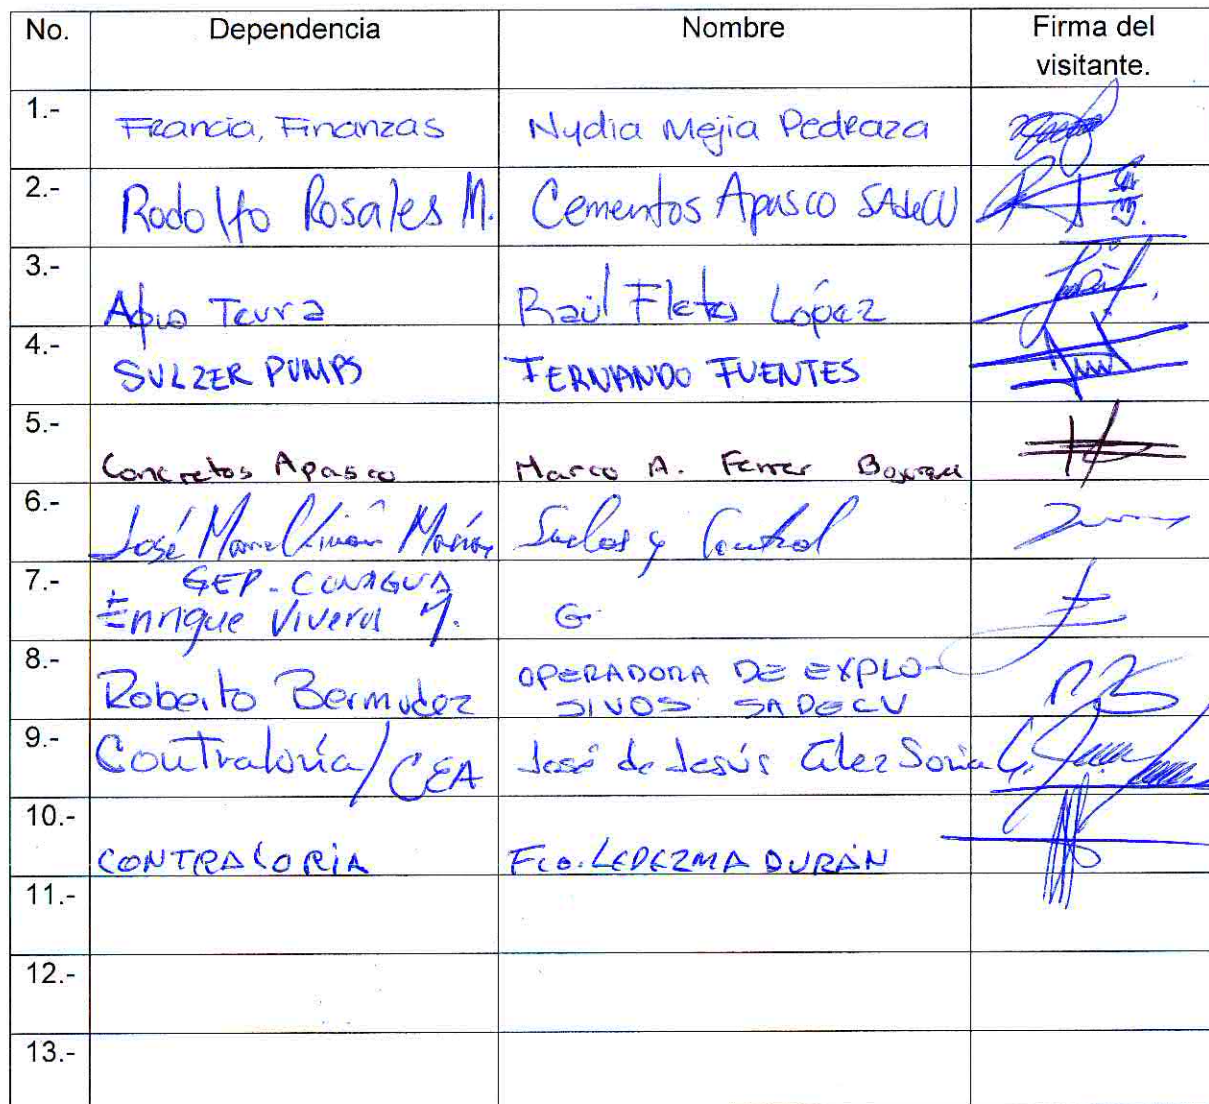 No. Dependencia Nombre Firma del
visitante.
1.- Francia, Finanzas Nydia Mejia Pedraza
2.- Rodolfo Rosales M. Cementos Apasco SAdeCV
3.- Raúl Fletes López
4.- SULZER PUMPS FERNANDO FUENTES
5.- Concretos Apasco Marco A. Ferrer
6.- José Suelos y Control
7.- GEP-CONAGUA
Enrique Viveros M. G
8.- Roberto Bermudez OPERADORA DE EXPLO-
SIVOS SADECV
9.- Contraloría/CEA José de Jesús Glez Soria
10.- CONTRALORIA Fco. LEDEZMA DURÁN
11.-
12.-
13.-